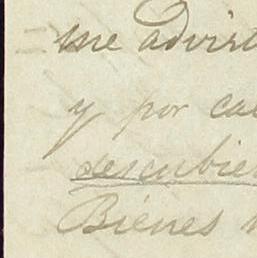 me advirt
y por ca
descubie
Bienes